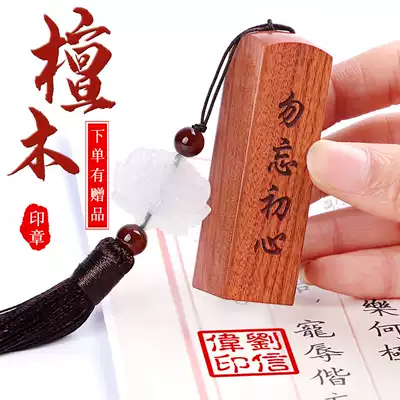 檀木
下单有赠品
印章
勿忘初心
劉信
偉印
樂何極
寵辱偕